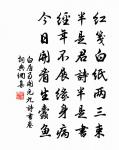 紅箋白紙兩三束
半是君詩半是書
經年不展緣身病
今日開看生蠹魚
白居易開元九詩書卷
詞典網集